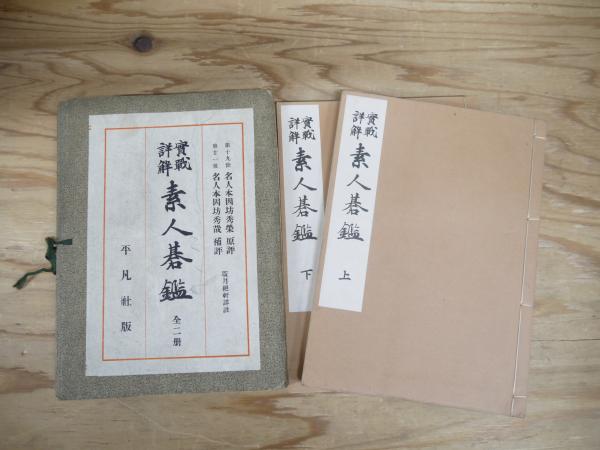 第十九世 名人本因坊秀榮 原評
第廿一世 名人本因坊秀哉 補評
實戰
詳解
素人碁鑑 全二册
平凡社版
實戰
詳解
素人碁鑑 下
實戰
詳解
素人碁鑑 上